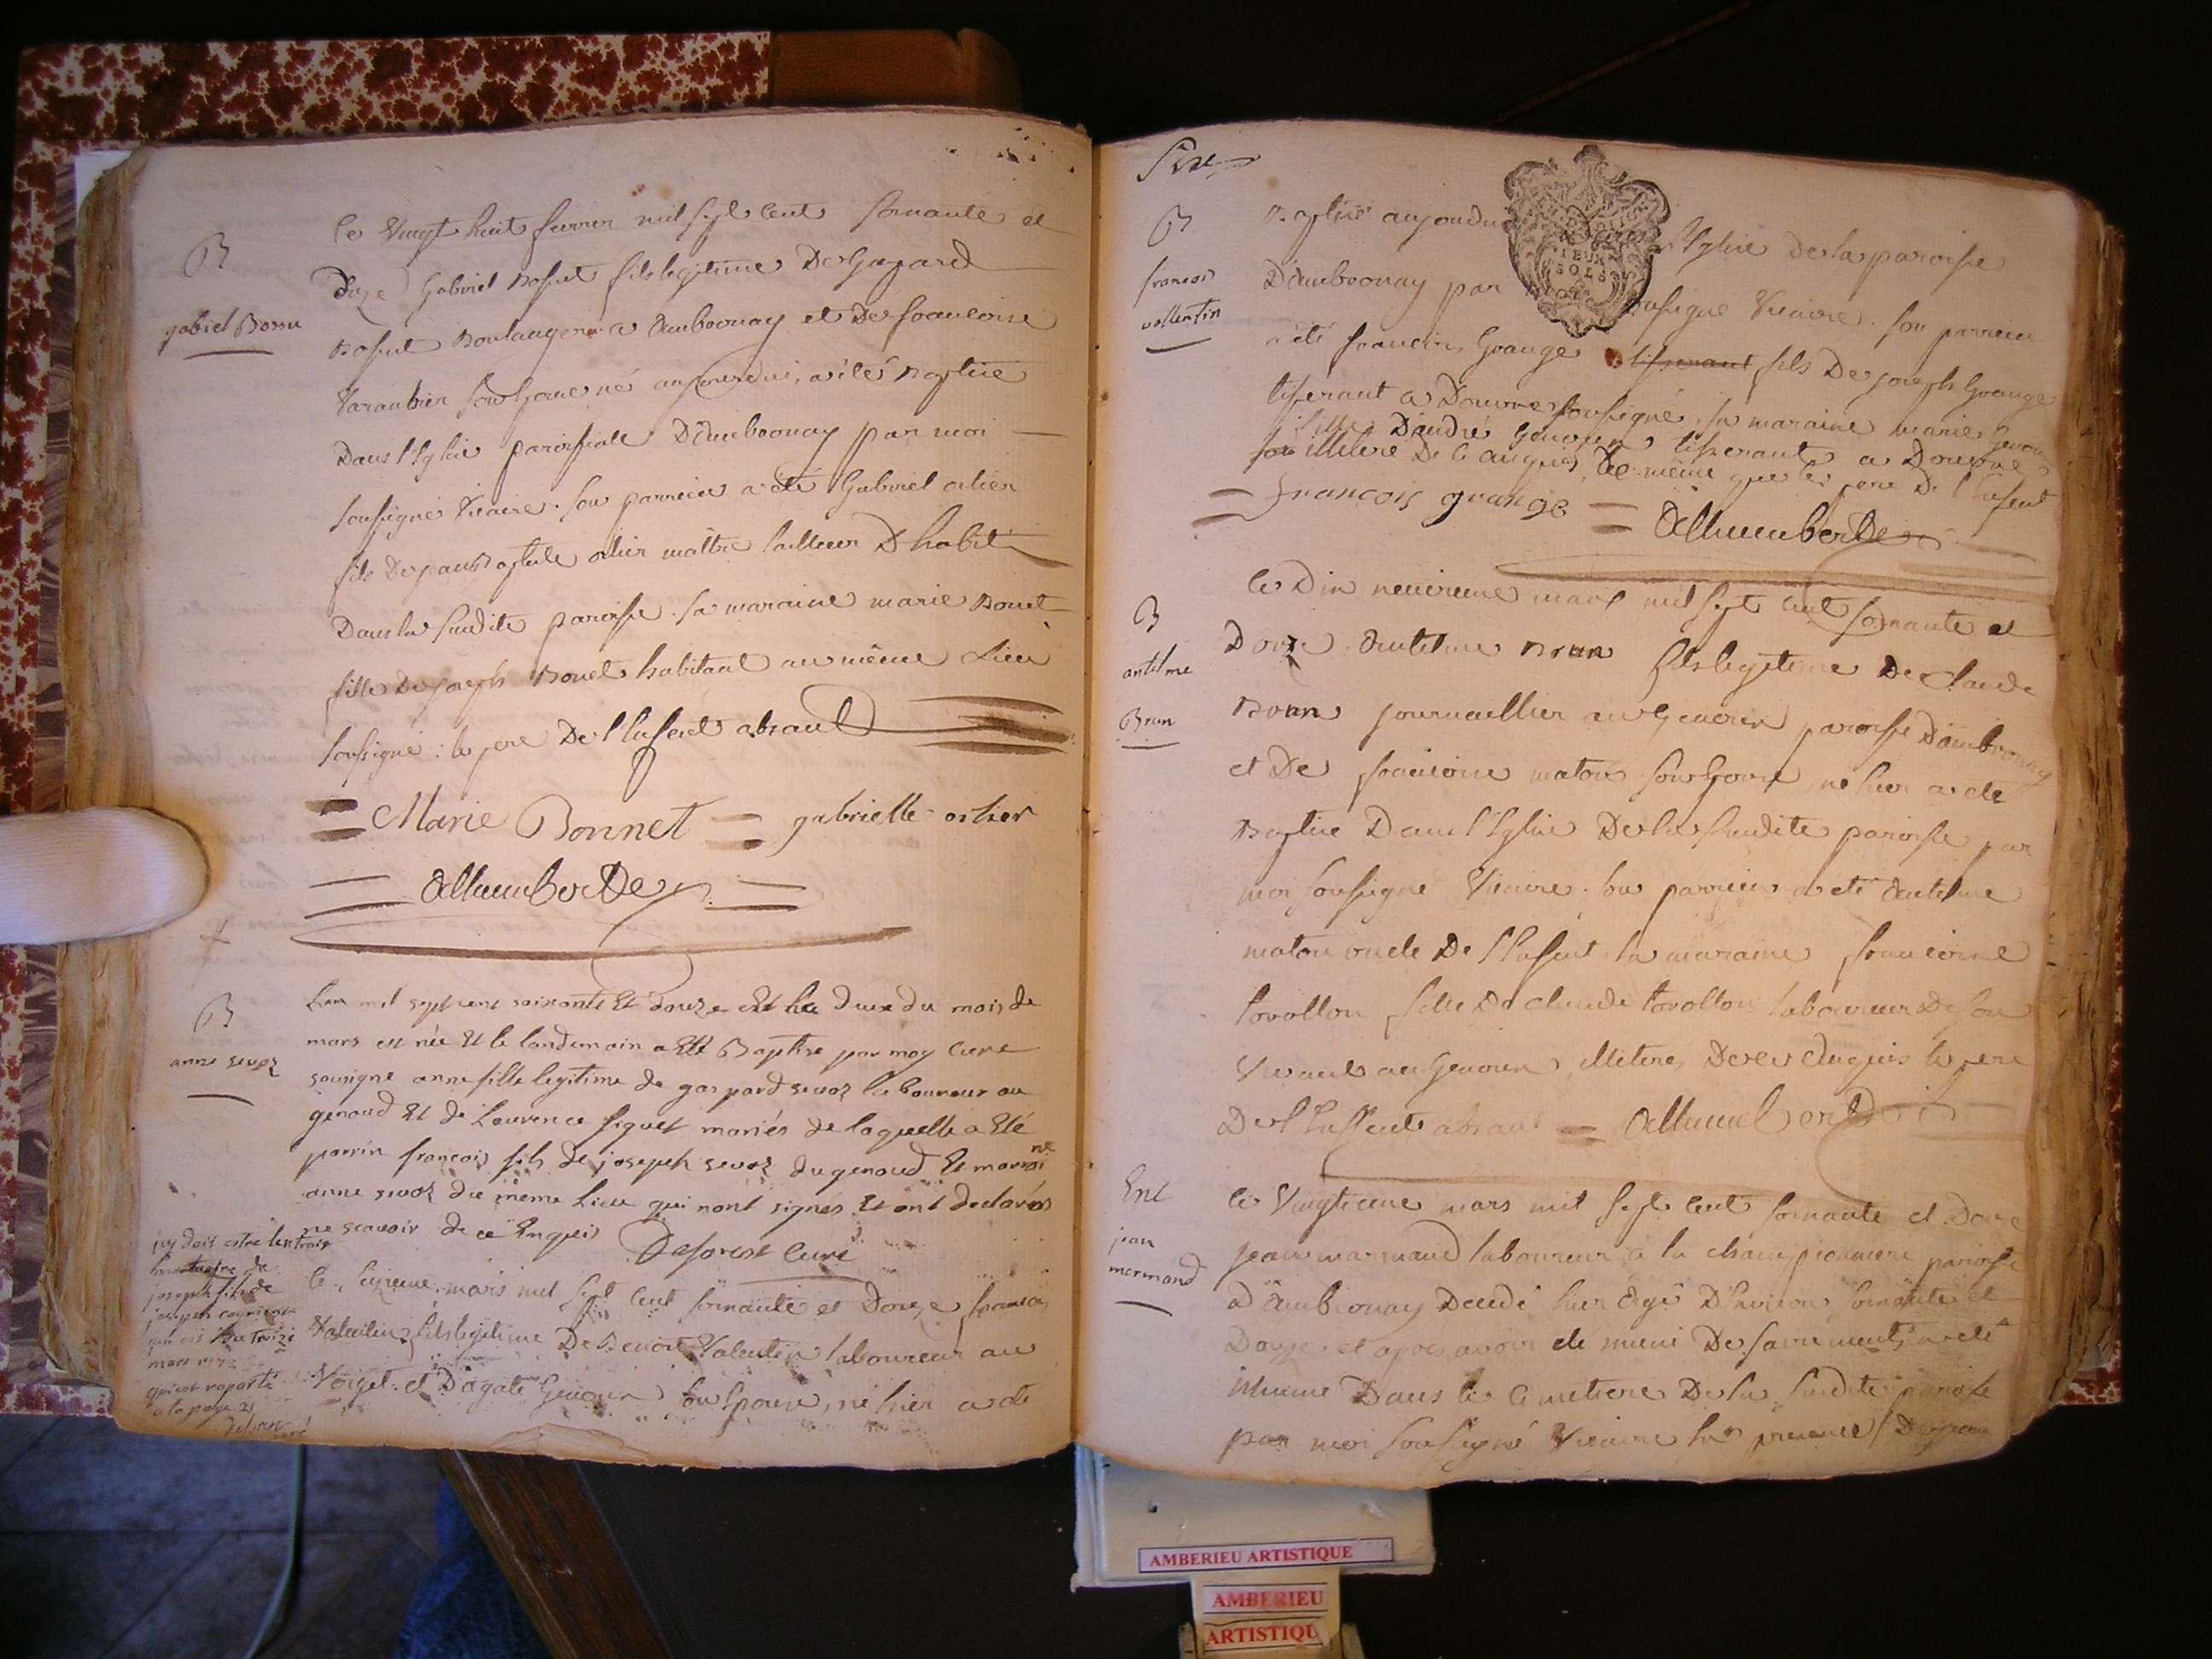 B
gabriel Bossu
Le Vingt huit fevrier mil sept cent soixante et
douze Gabriel Bossut fils legitime De Gaspard
Bossut Boulanger a Ambronay et De francoise
Varambier son Epouse né aujourdui, a été Baptisé
Dans l'Eglise paroissiale D'Ambronay par moi
soussigné Vicaire. son parrein a été Gabriel orlier
fils De jean Baptiste orlier maître tailleur D'habit
Dans la susdite paroisse. sa maraine marie Bonet
fille De joseph Bonet habitant au même Lieu
soussigné : le pere De l'Enfent absant
= Marie Bonnet = gabrielle orlier
= Alhumbert De =
B
anne sevoz
L'an mil sept cent soixante Et douze et le deux du mois de
mars est née Et le landemain a Eté Baptise par moy Curé
sousigne anne fille legitime de gaspard sevoz laboureur au
genoud Et de Laurence figuet mariés de laquelle a Eté
parrin françois fils de joseph sevoz du genoud Et marraine
anne sevoz du même Lieu qui nont signés Et ont declarés
ne scavoir de ce Enquis Deforest Curé
icy doit estre lextrait
de
joseph fils de
joseph
treize
mars 1772
qui est raporté
a la page 21
Deforest curé
Le seizieme mars mil sept cent soixante et Douze francois
Valentin fils legitime De Benoit Valentin laboureur au
Vorget et D'agate Genoux son Epouse, né hier a été
B
francois
vallentin
Baptisé aujourdui Eglise De la paroisse
D'Ambronay par soussigné Vicaire. son parrein
a été francois Grange tisserant fils De joseph Grange
tisserant a Douvre soussigné, sa maraine marie
fille D'André tisserant a Douvre
illitere De ce anquis, De même que le pere De l'Enfent
= francois grange = Alhumbert De
B
antelme
Brun
Le Dix neuvieme mars mil sept cent soixante et
Douze. Antelme Brun fils legitime De Claude
Brun journaillier au Genoux paroisse D'ambronay
et De francoise maton son Epouse, né hier a été
Baptisé Dans l'Eglise De la susdite paroisse par
moi soussigné Vicaire. son parrein a été Antelme
maton oncle De l'Enfent sa maraine francoise
tovollon fille De claude tovollon laboureur De son
Vivant au Genoux, illiteres De ce Anquis le pere
De l'Enfent absant = Alhumbert De
Ent
jean
mermand
Le Vingtieme mars mil sept cent soixante et Douze
jean marmand laboureur à la championniere paroisse
D'Ambronay Decedé hier agé D'Environ soixante et
Douze et apres avoir été muni De sacrements, a été
inhumé Dans le Cimetiere De la susdite paroisse
par moi soussigné Vicaire En presence De jean
AMBERIEU ARTISTIQUE
AMBERIEU
ARTISTIQU